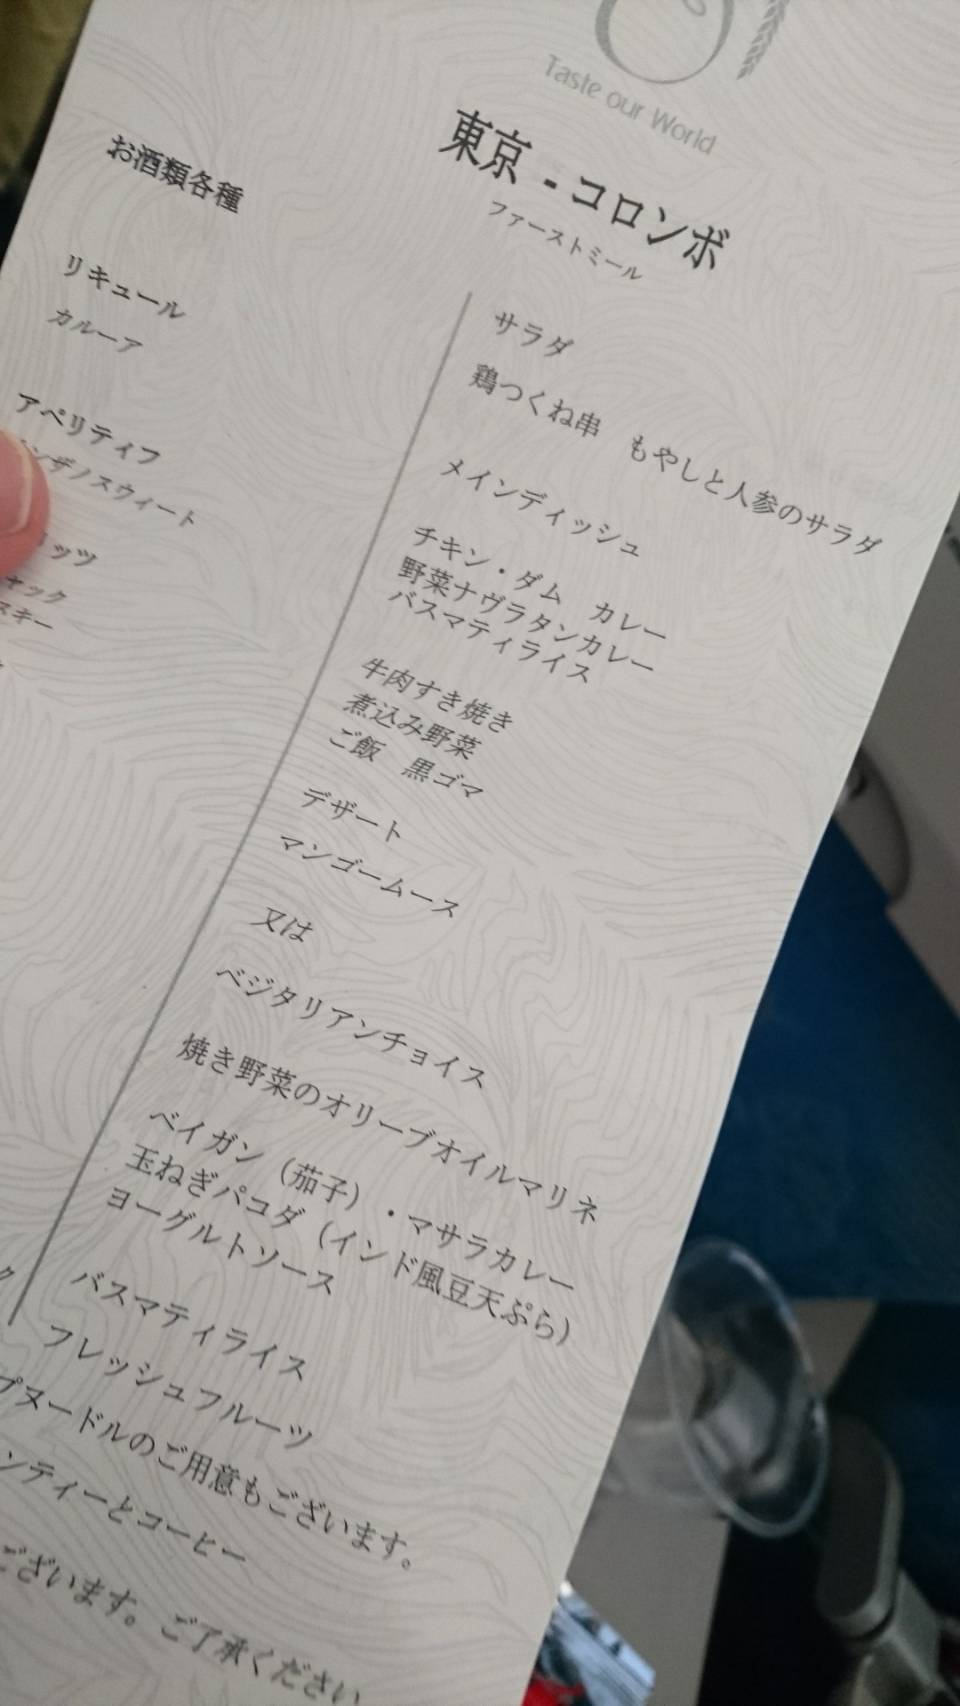 Taste our World
東京 - コロンボ
ファーストミール
お酒類各種
リキュール
カルーア
アペリティフ
ンザノスウィート
ッツ
ャック
スキー
サラダ
鶏つくね串　もやしと人参のサラダ
メインディッシュ
チキン・ダム　カレー
野菜ナヴラタンカレー
バスマティライス
牛肉すき焼き
煮込み野菜
ご飯　黒ゴマ
デザート
マンゴームース
又は
ベジタリアンチョイス
焼き野菜のオリーブオイルマリネ
ベイガン（茄子）・マサラカレー
玉ねぎパコダ（インド風豆天ぷら）
ヨーグルトソース
バスマティライス
フレッシュフルーツ
プヌードルのご用意もございます。
ンティーとコーヒー
ございます。ご了承ください